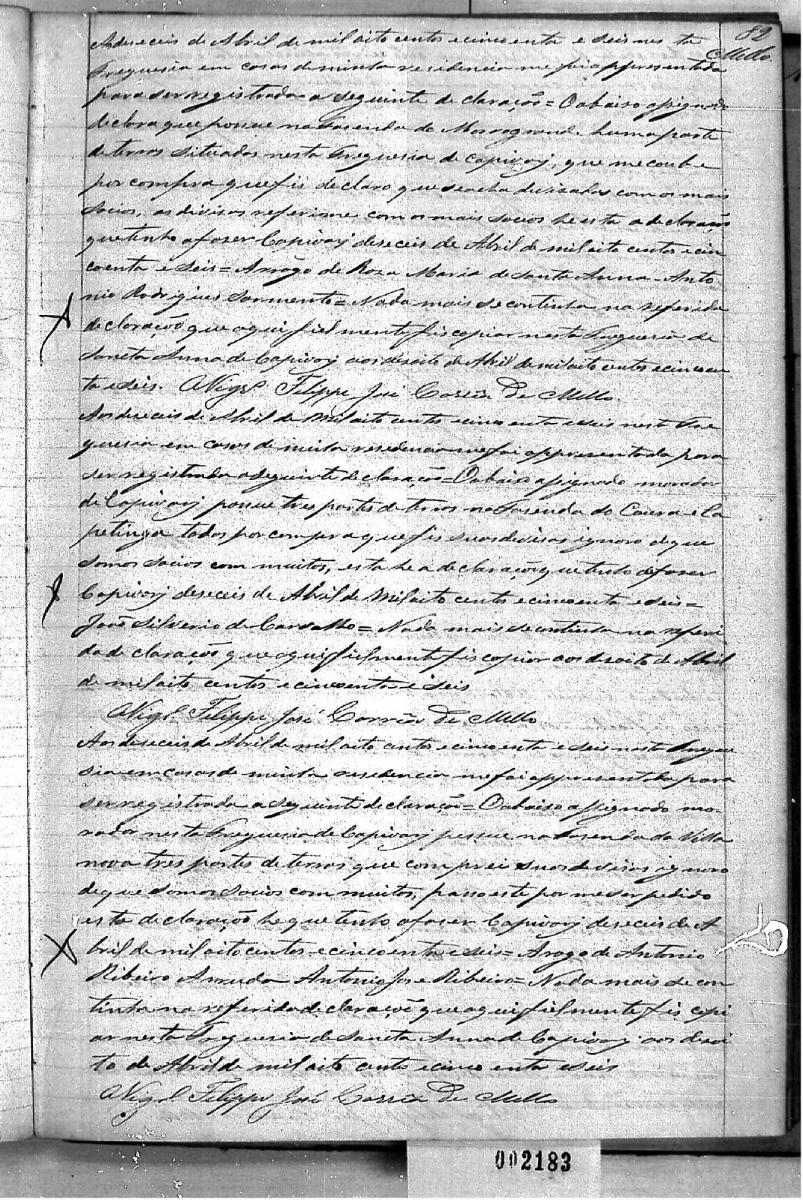 82
Mello.
A deseceis de Abril de mil oito centos e cincoenta e seis nes ta
Freguesia em casas de minha residencia me foi appresentada
para ser registrada a seguinte declaração = O abaixo assignado
declara que possue na Fasenda do Morro grande huma parte
de terras situadas nesta Freguesia de Capivary, que me coube
por compra que fis declaro que se acha divisadas com os mais
socios, as divisas referisme com os mais socios he esta a declaração
que tenho a faser Capivary deseceis de Abril de mil oito centos e cin
coenta e seis = Arrogo de Rosa Maria de Santa Anna - Anto
nio Rodrigues Sarmento = Nada mais se continha na referida
declaração que aqui fielmente fis copiar nesta Freguesia de
Sancta Anna de Capivary aos desoito de Abril de mil oito centos e cincoen
ta e seis. O Vigr.o Filippe José Corrêa de Mello.
Aos deseceis de Abril de Mil oito centos e cincoenta e seis nesta Fre
guesia em casas de minha residencia me foi appresentada para
ser registrada a seguinte declaração = O abaixo assignado morador
de Capivary possue tres partes de terras na Fasenda do e Ca
petinga todas por compra que fis suas divisas ignoro de que
somos socios com muitos, esta he a declaração que tenho a faser
Capivary deseceis de Abril de Mil oito centos e cincoenta e seis =
João Silverio de Carvalho = Nada mais se continha na referi
da declaração que aqui fielmente fis copiar aos desoito de Abril
de mil oito centos e cincoenta e seis
O Vigr.o Filippe José Corrêa de Mello
Aos deseceis de Abril de mil oito centos e cincoenta e seis nesta Fregue
sia em casas de minha residencia me foi appresentada para
ser registrada a seguinte declaração = O abaixo assignado mo
rador nesta Freguesia de Capivary possue na Fasenda da Villa
nova tres partes de terras que comprei suas divisas ignoro
de que somos socios com muitos, passo este por me ser pedido
esta declaração he que tenho a faser Capivary deseceis de A
bril de mil oito centos e cincoenta e seis = Arogo de Antonio
Ribeiro Arruda Antonio Jose Ribeiro = Nada mais se con
tinha na referida declaração que aqui fielmente fis copi
ar nesta Freguesia de Sancta Anna de Capivary aos desoi
to de Abril de mil oito centos e cincoenta e seis
O Vigr.o Filippe José Corrêa de Mello
002183